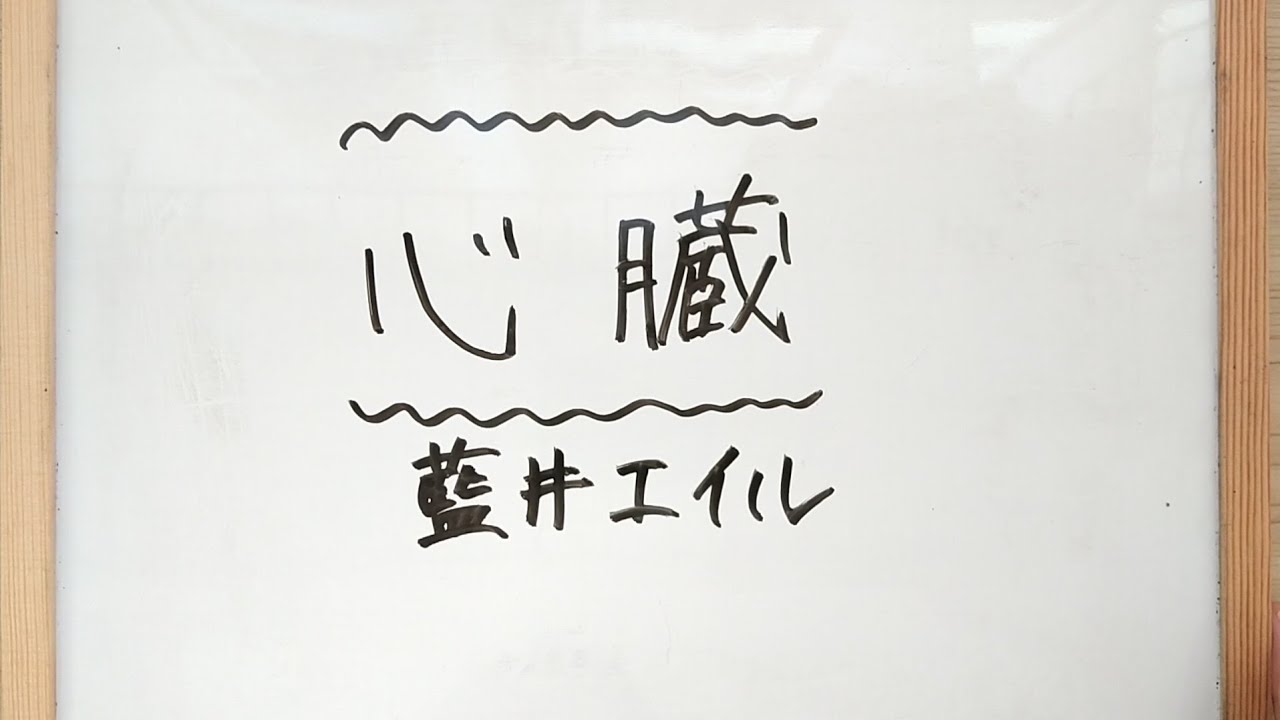 心臓
藍井エイル